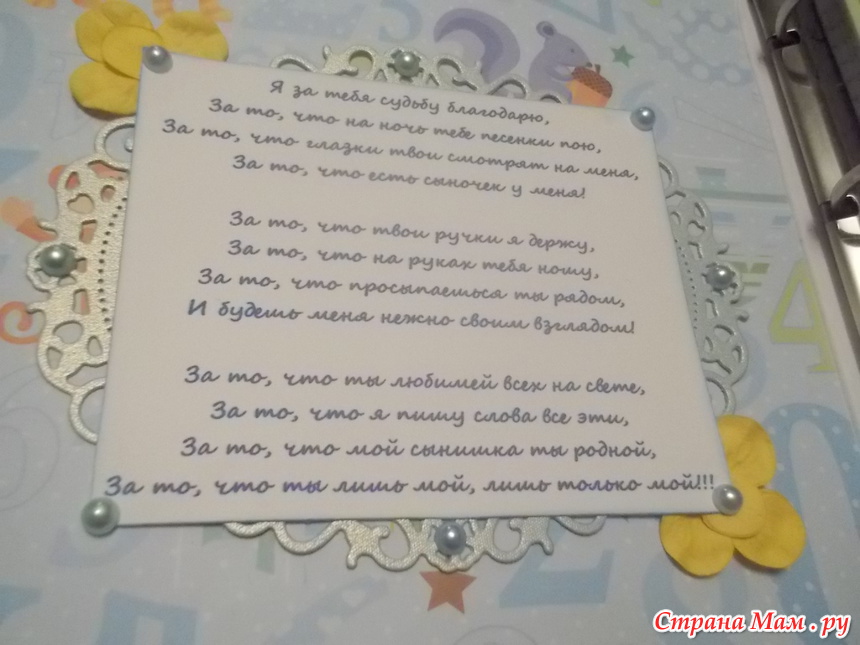 Я за тебя судьбу благодарю,
За то, что на ночь тебе песенки пою,
За то, что глазки твои смотрят на меня,
За то, что есть сыночек у меня!
За то, что твои ручки я держу,
За то, что на руках тебя ношу,
За то, что просыпаешься ты рядом,
И будешь меня нежно своим взглядом!
За то, что ты любимей всех на свете,
За то, что я пишу слова все эти,
За то, что мой сынишка ты родной,
За то, что ты лишь мой, лишь только мой!!!
Страна Мам.ру